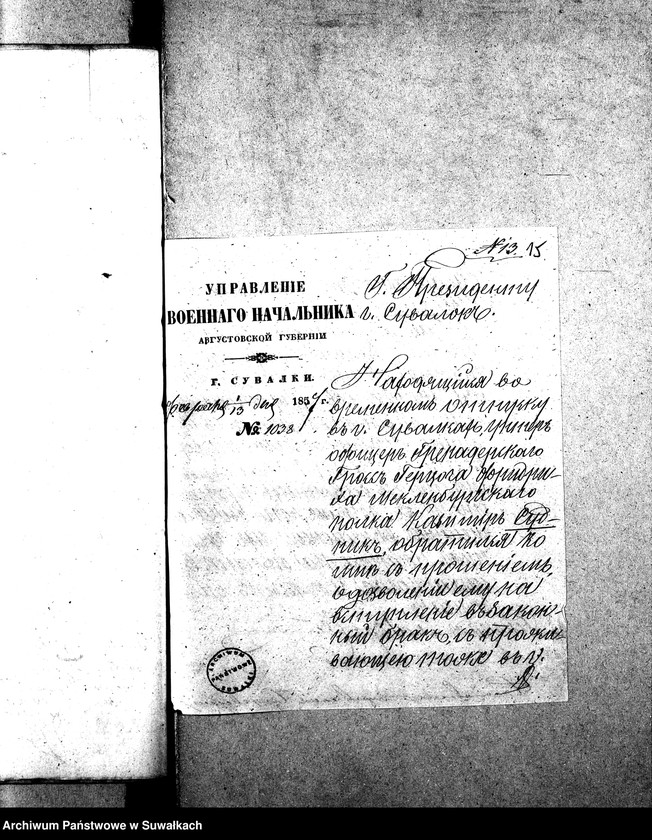 № 13. 15
УПРАВЛЕНІЕ
ВОЕННАГО НАЧАЛЬНИКА
АВГУСТОВСКОЙ ГУБЕРНІИ
Г. СУВАЛКИ.
Февраля 1/13 дня 1857 г.
№ 1038
Г. Президенту
г. Сувалокъ.
Находящійся во
временномъ отпуску
въ г. Сувалкахъ, унтеръ
офицеръ Гренадерскаго
Гросъ Герцога Фридри-
ха Мекленбургскаго
полка Казимиръ Суд-
никъ, обратился ко
мнѣ съ прошеніемъ,
о дозволеніи ему на
вступленіе въ закон-
ный бракъ, съ прожи-
вающею тоже въ г.
ARCHIWUM
PAŃSTWOWE
SUWAŁKI
Archiwum Państwowe w Suwałkach